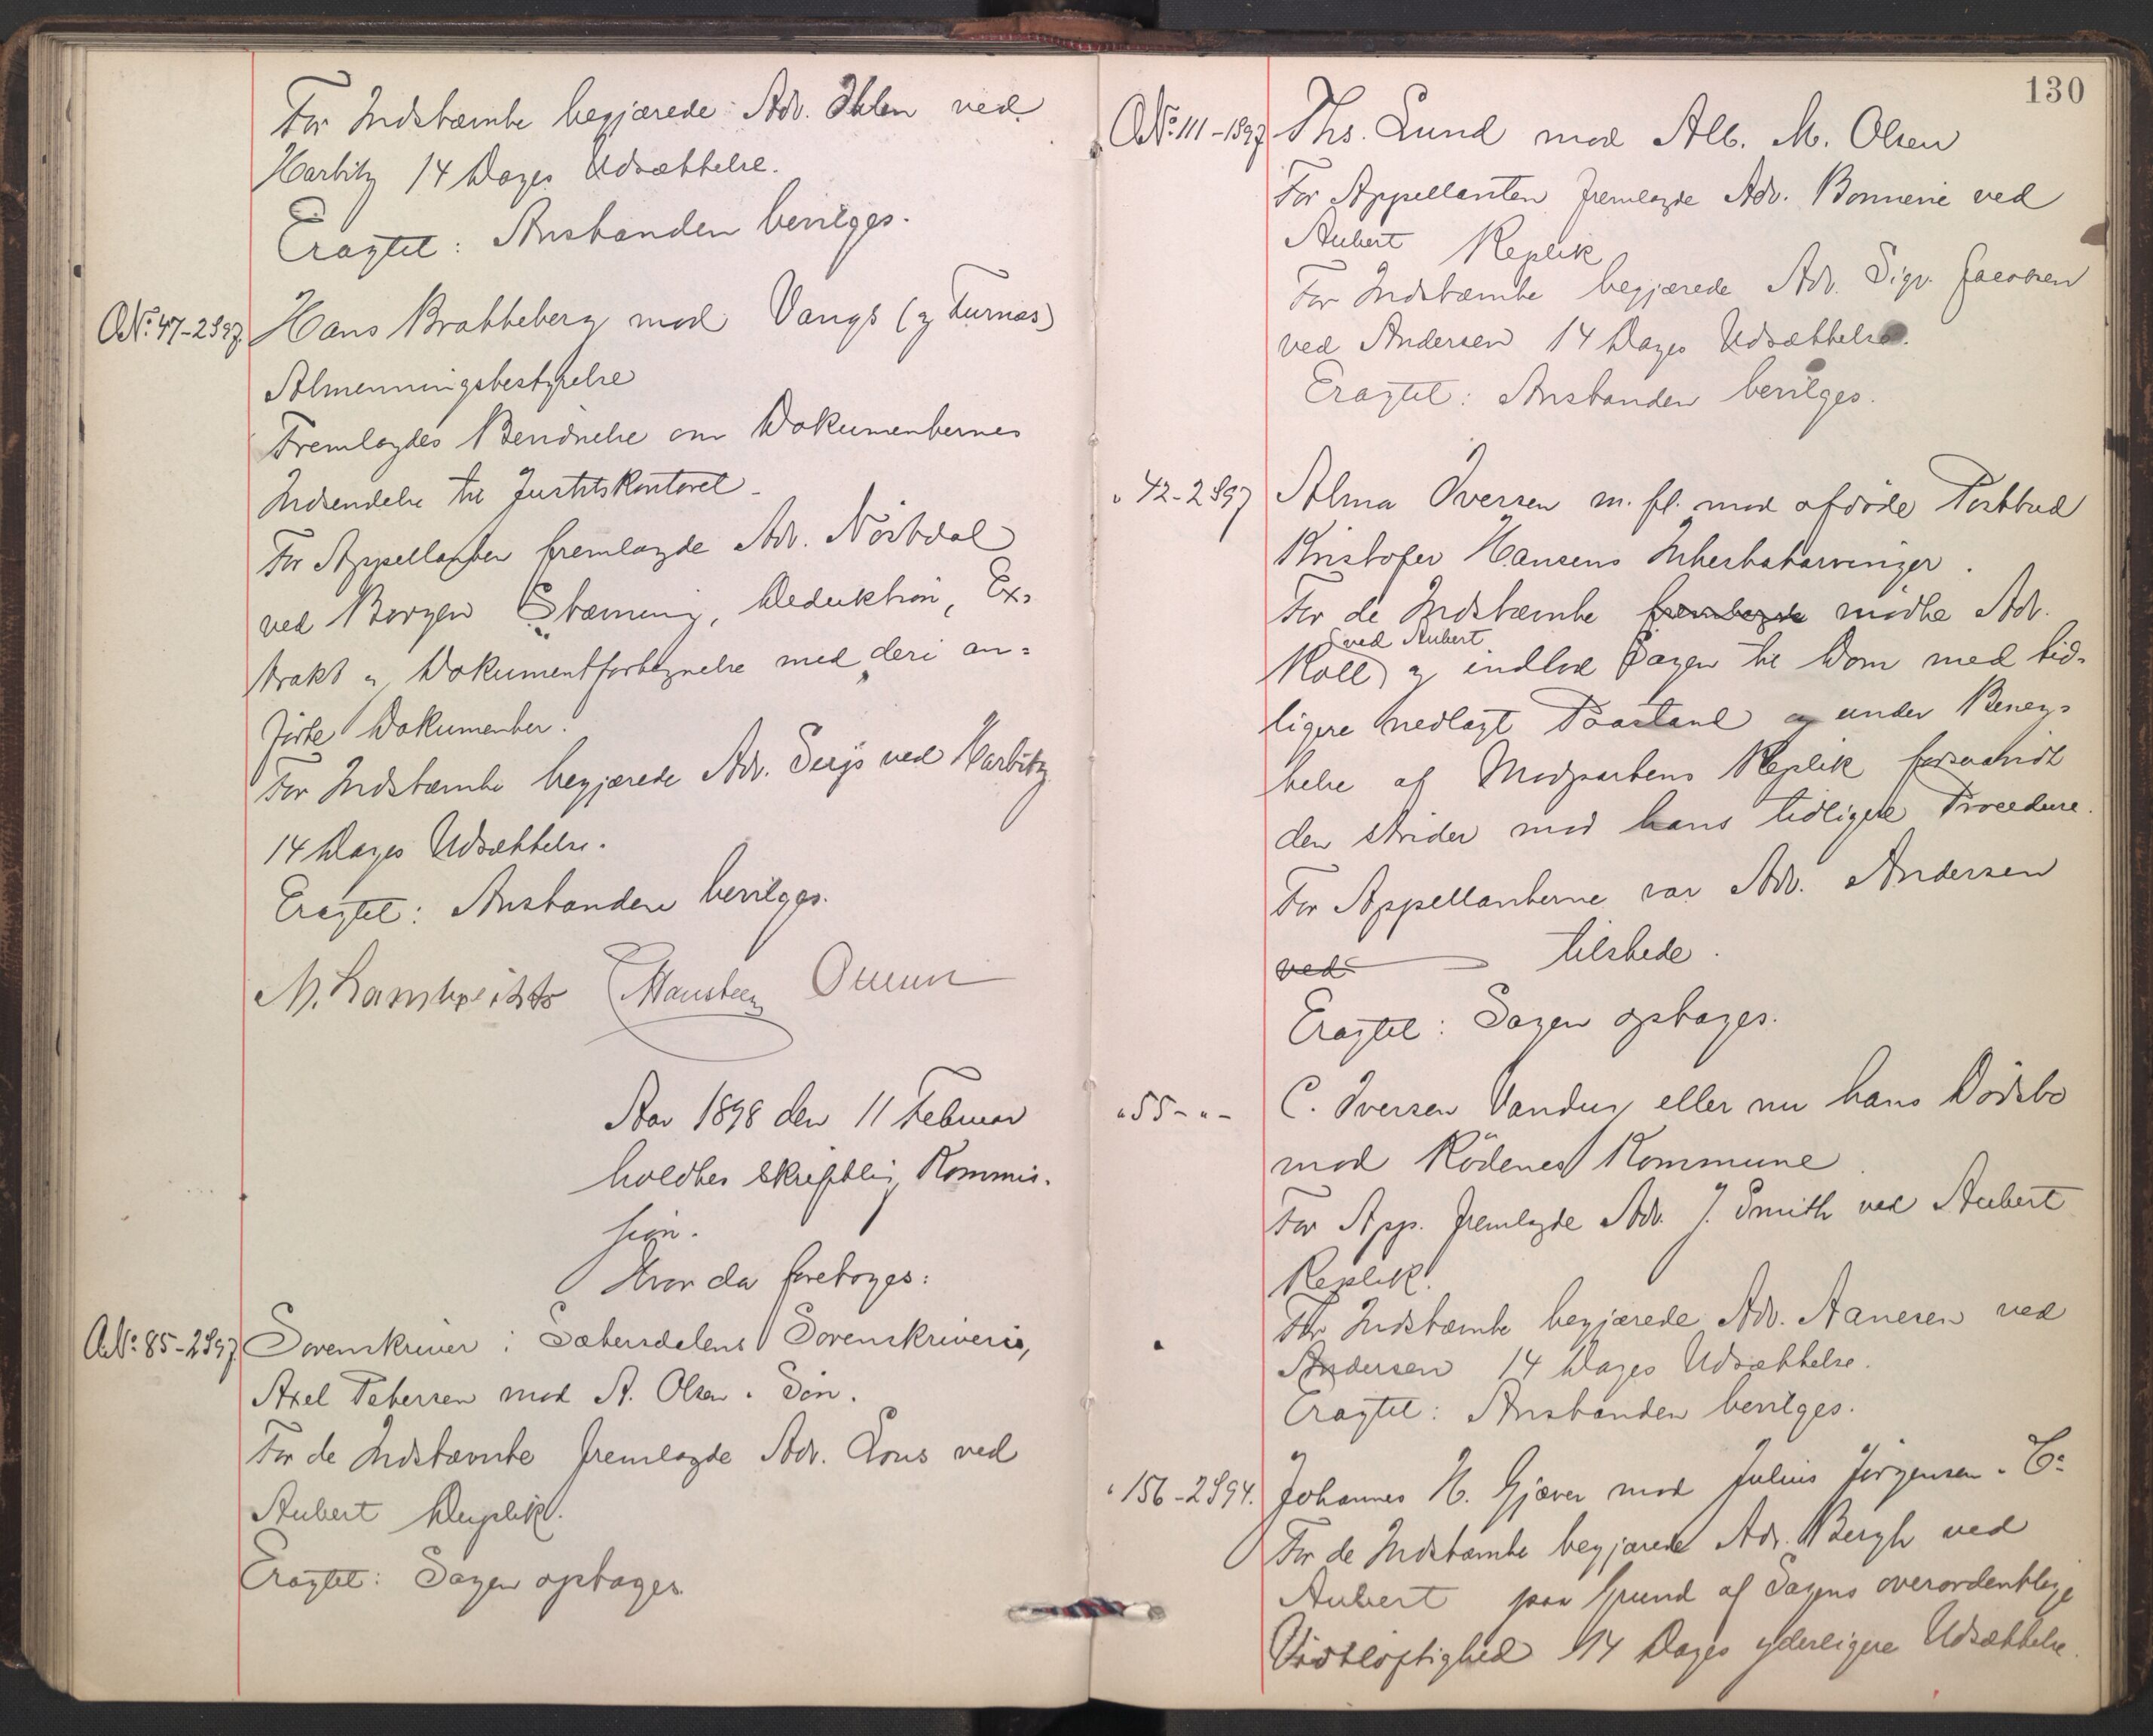 For Indstævnte begjærede Adv. Ihlen ved
Harbitz 14 Dages Udsættelse.
Eragtet: Anstanden bevilges.
A№ 47-2 S97. Hans Bratteberg mod Vangs (og Furnæs)
Almenningsbestyrelse
Fremlagdes Bevidnelse om Dokumenternes
Indsendelse til Justitskontoret.
For Appellanten fremlagde Adv. Nörstdal
ved Borgen Stævning, Deduktion, Ex-
trakt og Dokumentfortegnelse med deri an-
förte Dokumenter.
For Indstævnte begjærede Adv. ved Harbitz
14 Dages Udsættelse.
Eragtet: Anstanden bevilges.
M. Lambrechts Hansteen
Aar 1898 den 11 Februar
holdtes skriftlig Kommis-
sion.
Hvor da foretoges:
A№ 85-2 S97. Sorenskriver i Sætersdalens Sorenskriveri,
Axel Petersen mod A. Olsen & Sön.
For de Indstævnte fremlagde Adv. Lous ved
Aubert Duplik.
Eragtet: Sagen optages
130
A№ 111-1 S97 Ths. Lund mod Alb. M. Olsen
For Appellanten fremlagde Adv. Bonnevie ved
Aubert Replik
For Indstævnte begjærede Adv. Sigv. Jacobsen
ved Andersen 14 Dages Udsættelse.
Eragtet: Anstanden bevilges.
" 42-2 S97 Alma Iversen m. fl. mod afdöde Postbud
Kristofer Hansens Arvinger.
For de Indstævnte fremlagde mödte Adv.
ved Aubert
Koll og indlod Sagen til Dom med tid-
ligere nedlagt Paastand og under Beneg-
telse af Modpartens Replik forsaavidt
den strider mod hans tidligere Procedure.
For Appellanterne var Adv. Andersen
ved tilstede.
Eragtet: Sagen optages.
" 55 - " - C. Iversen Vandug eller nu hans Dödsbo
mod Rödenes Kommune.
For App. fremlagde Adv. J. Smith ved Aubert
Replik.
For Indstævnte begjærede Adv. Aanesen ved
Andersen 14 Dages Udsættelse.
Eragtet: Anstanden bevilges.
" 156-2 S94. Johannes H. Gjæver mod Julius Jörgensen & Co
For de Indstævnte begjærede Adv. Bergh ved
Aubert paa Grund af Sagens overordentlige
Vidtlöftighed 14 Dages yderligere Udsættelse.